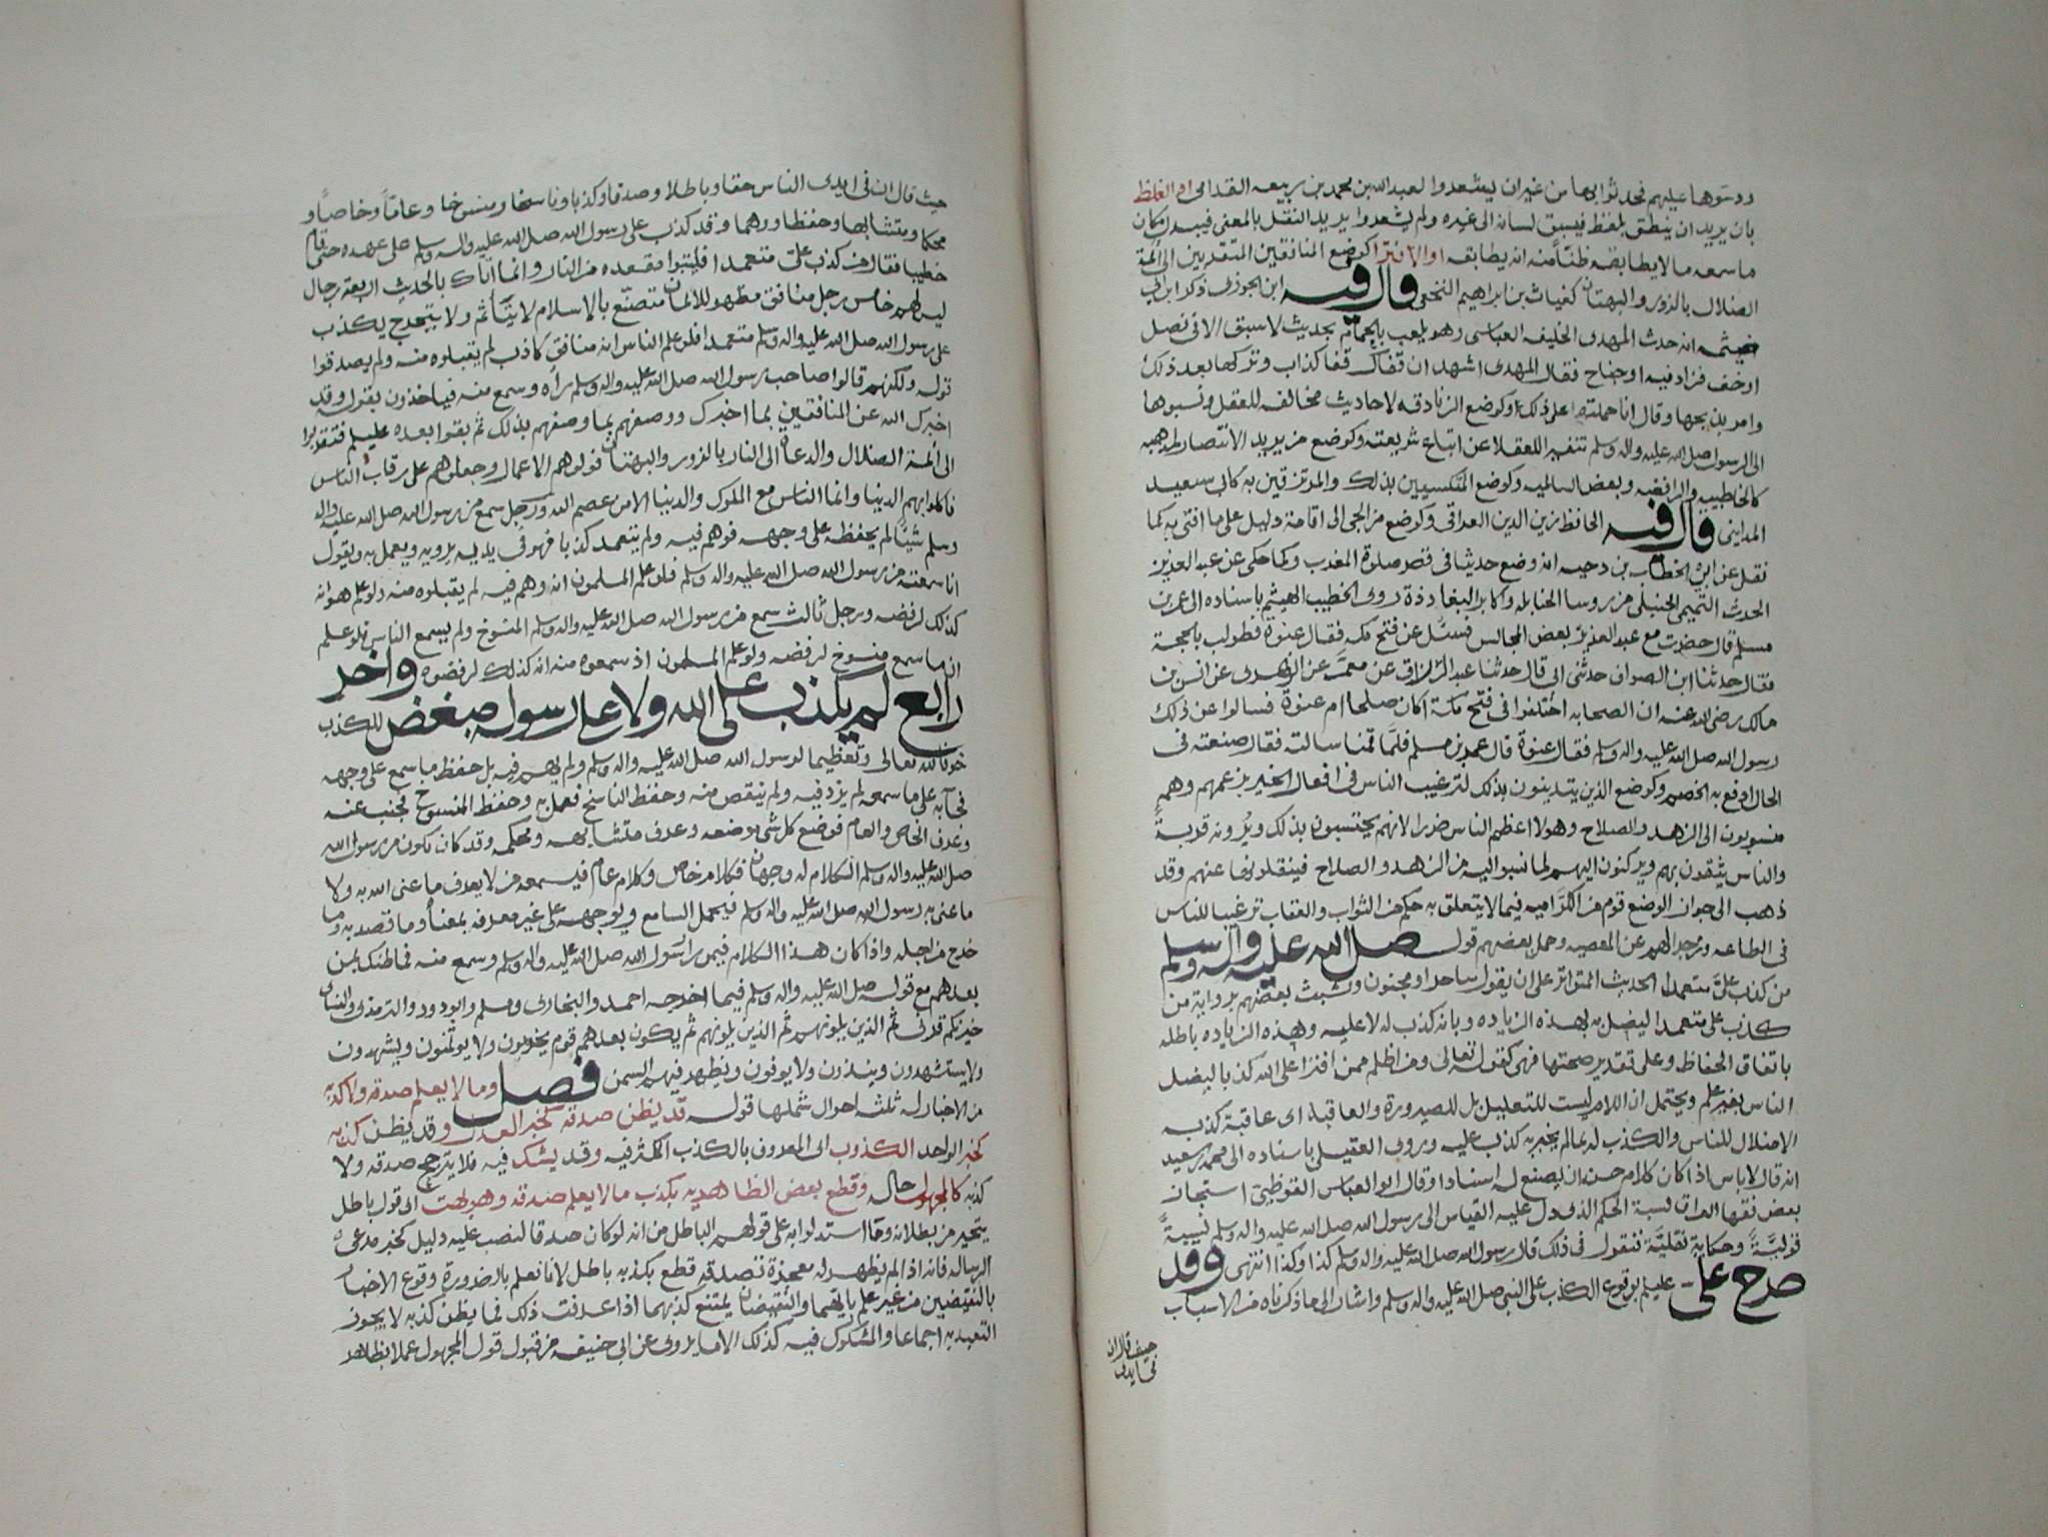 ودسوها عليهم فحدثوا بها من غير ان يشعدوا لعبدالله بن محمد بن ربيعه القدامى او الغلط
بان يريد ان ينطق بلفظ فيسبق لسانه الى غيره ولم يشعدوا يريد النقل بالمعنى فيبدل مكان
ما سمعه ما لا يطابقه ظنا منه انه يطابقه او الافترا كوضع المنافقين المتقربين الى ائمة
الضلال بالزور والبهتان كغياث بن ابراهيم النخعى قال فيه ابن الجوزى ذكر ابن ابى
خيثمه انه حدث المهدى الخليفه العباسى وهو يلعب بالحمام بحديث لا سبق الا فى نصل
او خف فزاد فيه او جناح فقال المهدى اشهد ان قفاك قفا كذاب وتركها بعد ذلك
وامر بذبحها وقال انا حملته على ذلك او كوضع الزنادقه لاحاديث مخالفه للعقل ونسبوها
الى الرسول صل الله عليه واله وسلم تنفير اللعقلا عن اتباع شريعته وكوضع من يريد الانتصار لمذهبه
كالخاطبيه والرافضيه وبعض السالميه وكوضع المتكسبين بذلك والمرتزقين به كابى سعيد
المداينى قال فيه الحافظ زين الدين العراقى وكوضع من الجى الى اقامة دليل على ما افتى به كما
نقل عن ابى الخطاب بن دحيه انه وضع حديثا فى قصر صلوة المغرب وكما حكى عن عبد العزيز
الحدث التميمى الحنبلى من روسا الحنابله واكابر البغاددة روى الخطيب الهيثم باسناده الى عمر بن
مسلم قال حضرت مع عبد العزيز بعض المجالس فسئل عن فتح مكه فقال عنوة فطولب بالحجة
فقال حدثنا ابن الصواف حدثنى ابى قال حدثنا عبد الرزاق عن معمر عن الزهرى عن انس بن
مالك رضى الله عنه ان الصحابه اختلفوا فى فتح مكة اكان صلحا ام عنوة فسالوا عن ذلك
رسول الله صل الله عليه واله وسلم فقال عنوة قال عمر بن مسلم فلما قمنا سالته فقال صنعته فى
الحال ادفع به الخصم وكوضع الذين يتدينون بذلك لترغيب الناس فى افعال الخير بزعمهم وهم
منسوبون الى الزهد والصلاح وهولا اعظم الناس ضررا لانهم يحتسبون بذلك ويرونه قربة
والناس يثقون بهم ويركنون اليهم لما نسبوا اليه من الزهد والصلاح فينقلونها عنهم وقد
ذهب الى جواز الوضع قوم من الكراميه فيما لا يتعلق به حكم من الثواب والعقاب ترغيبا للناس
فى الطاعه وزجرا لهم عن المعصيه وحمل بعضهم قوله صل الله عليه واله وسلم
من كذب على متعمدا الحديث المتواتر على ان يقول ساحر او مجنون وتشبث بعضهم برواية من
كذب على متعمدا ليضل به بهذه الزياده وبانه كذب له لا عليه وهذه الزياده باطله
باتفاق الحفاظ وعلى تقدير صحتها فهى كقوله تعالى ومن اظلم ممن افترا على الله كذبا ليضل
الناس بغير علم ويحتمل ان اللام ليست للتعليل بل للصيرورة والعاقبة اى عاقبة كذبه
الاضلال للناس والكذب له بما لم يخبر به كذب عليه وروى العقيلى باسناده الى محمد بن سعيد
انه قال لا باس اذا كان كلام حسن ان يضع له اسنادا وقال ابو العباس القرطبى استجاز
بعض فقها العراق نسبة الحكم الذى دل عليه القياس الى رسول الله صل الله عليه واله وسلم نسبة
قولية وحكاية نقلية فنقول فى ذلك قال رسول الله صل الله عليه واله وسلم كذا وكذا انتهى وقد
صرح على عليلم بوقوع الكذب على النبى صل الله عليه واله وسلم واشار الى ما ذكرناه من الاسباب
حيث قال ان
فى ايدى
حيث قال ان فى ايدى الناس حقا وباطلا وصدقا وكذبا وناسخا ومنسوخا وعاما وخاصا و
محكما ومتشابها وحفظا ووهما وقد كذب على رسول الله صل الله عليه واله وسلم على عهده حتى قام
خطيبا فقال من كذب على متعمدا فليتبوا مقعده من النار وانما اتاك بالحديث اربعة رجال
ليس لهم خامس رجل منافق مظهر للايمان متصنع بالاسلام لا يتأثم ولا يتحرج يكذب
على رسول الله صل الله عليه واله وسلم متعمدا فلو علم الناس انه منافق كاذب لم يقبلوه منه ولم يصدقوا
قوله ولكنهم قالوا صاحب رسول الله صل الله عليه واله وسلم رأه وسمع منه فياخذون بقوله وقد
اخبرك الله عن المنافقين بما اخبرك ووصفهم بما وصفهم بذلك ثم بقوا بعده عليلم فتقربوا
الى ائمة الضلال والدعاة الى النار بالزور والبهتان فولوهم الاعمال وجعلوهم على رقاب الناس
فاكلوا بهم الدنيا وانما الناس مع الملوك والدنيا الا من عصم الله ورجل سمع من رسول الله صل الله عليه واله
وسلم شيئا لم يحفظه على وجهه فوهم فيه ولم يتعمد كذبا فهو فى يديه يرويه ويعمل به ويقول
انا سمعته من رسول الله صل الله عليه واله وسلم فلو علم المسلمون انه وهم فيه لم يقبلوه منه ولو علم هو انه
كذلك لرفضه ورجل ثالث سمع من رسول الله صل الله عليه واله وسلم المنسوخ ولم يسمع الناسخ فلو علم
ان ما سمع منسوخ لرفضه ولو علم المسلمون اذ سمعوه منه انه كذلك لرفضوه واخر
رابع لم يكذب على الله ولا على رسوله مبغض للكذب
خوفا لله تعالى وتعظيما لرسول الله صل الله عليه واله وسلم ولم يهم فيه بل حفظ ما سمع على وجهه
فجآ به على ما سمعه لم يزد فيه ولم ينقص منه وحفظ الناسخ فعمل به وحفظ المنسوخ فجنب عنه
وعرف الخاص والعام فوضع كل شى موضعه وعرف متشابهه ومحكمه وقد كان يكون من رسول الله
صل الله عليه واله وسلم الكلام له وجهان فكلام خاص وكلام عام فيسمعه من لا يعرف ما عنى الله به ولا
ما عنى به رسول الله صل الله عليه واله وسلم فيحمل السامع ويوجهه على غير معرفه بمعناه وما قصد به وما
خرج من اجله واذا كان هذا الكلام فيمن راى رسول الله صل الله عليه واله وسلم وسمع منه فما ظنك بمن
بعدهم مع قوله صل الله عليه واله وسلم فيما اخرجه احمد والبخارى ومسلم وابو دود والترمذى والنسائ
خيركم قرنى ثم الذين يلونهم ثم الذين يلونهم ثم يكون بعدهم قوم يخونون ولا يوتمنون ويشهدون
ولا يستشهدون وينذرون ولا يوفون ويظهر فيهم السمن فصل وما لا يعلم صدقه ولا كذبه
من الاخبار له ثلثه احوال شملها قوله قد يظن صدقه كخبر العدل وقد يظن كذبه
كخبر الواحد الكذوب اى المعروف بالكذب المكثر فيه وقد يشك فيه فلا يترجح صدقه ولا
كذبه كالمجهول حاله وقطع بعض الظاهريه بكذب ما لا يعلم صدقه وهو بهت اى قول باطل
يتحير من بطلانه وما استدلوا به على قولهم الباطل من انه لو كان صدقا لنصب عليه دليل كخبر مدعى
الرساله فانه اذا لم يظهر له معجزة تصدقه قطع بكذبه باطل لانا نعلم بالضرورة وقوع الاخبار
بالنقيضين من غير علم بايهما والنقيضان يمتنع كذبهما اذا عرفت ذلك فما يظن كذبه لا يجوز
التعبد به اجماعا والمشكوك فيه كذلك الا ما يروى عن ابى حنيفه من قبول قول المجهول عملا بظاهر